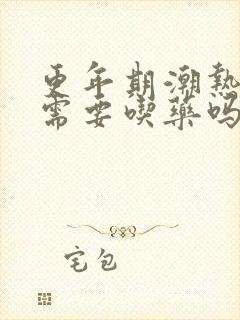 更年期潮热
需要喫药吗
宅包